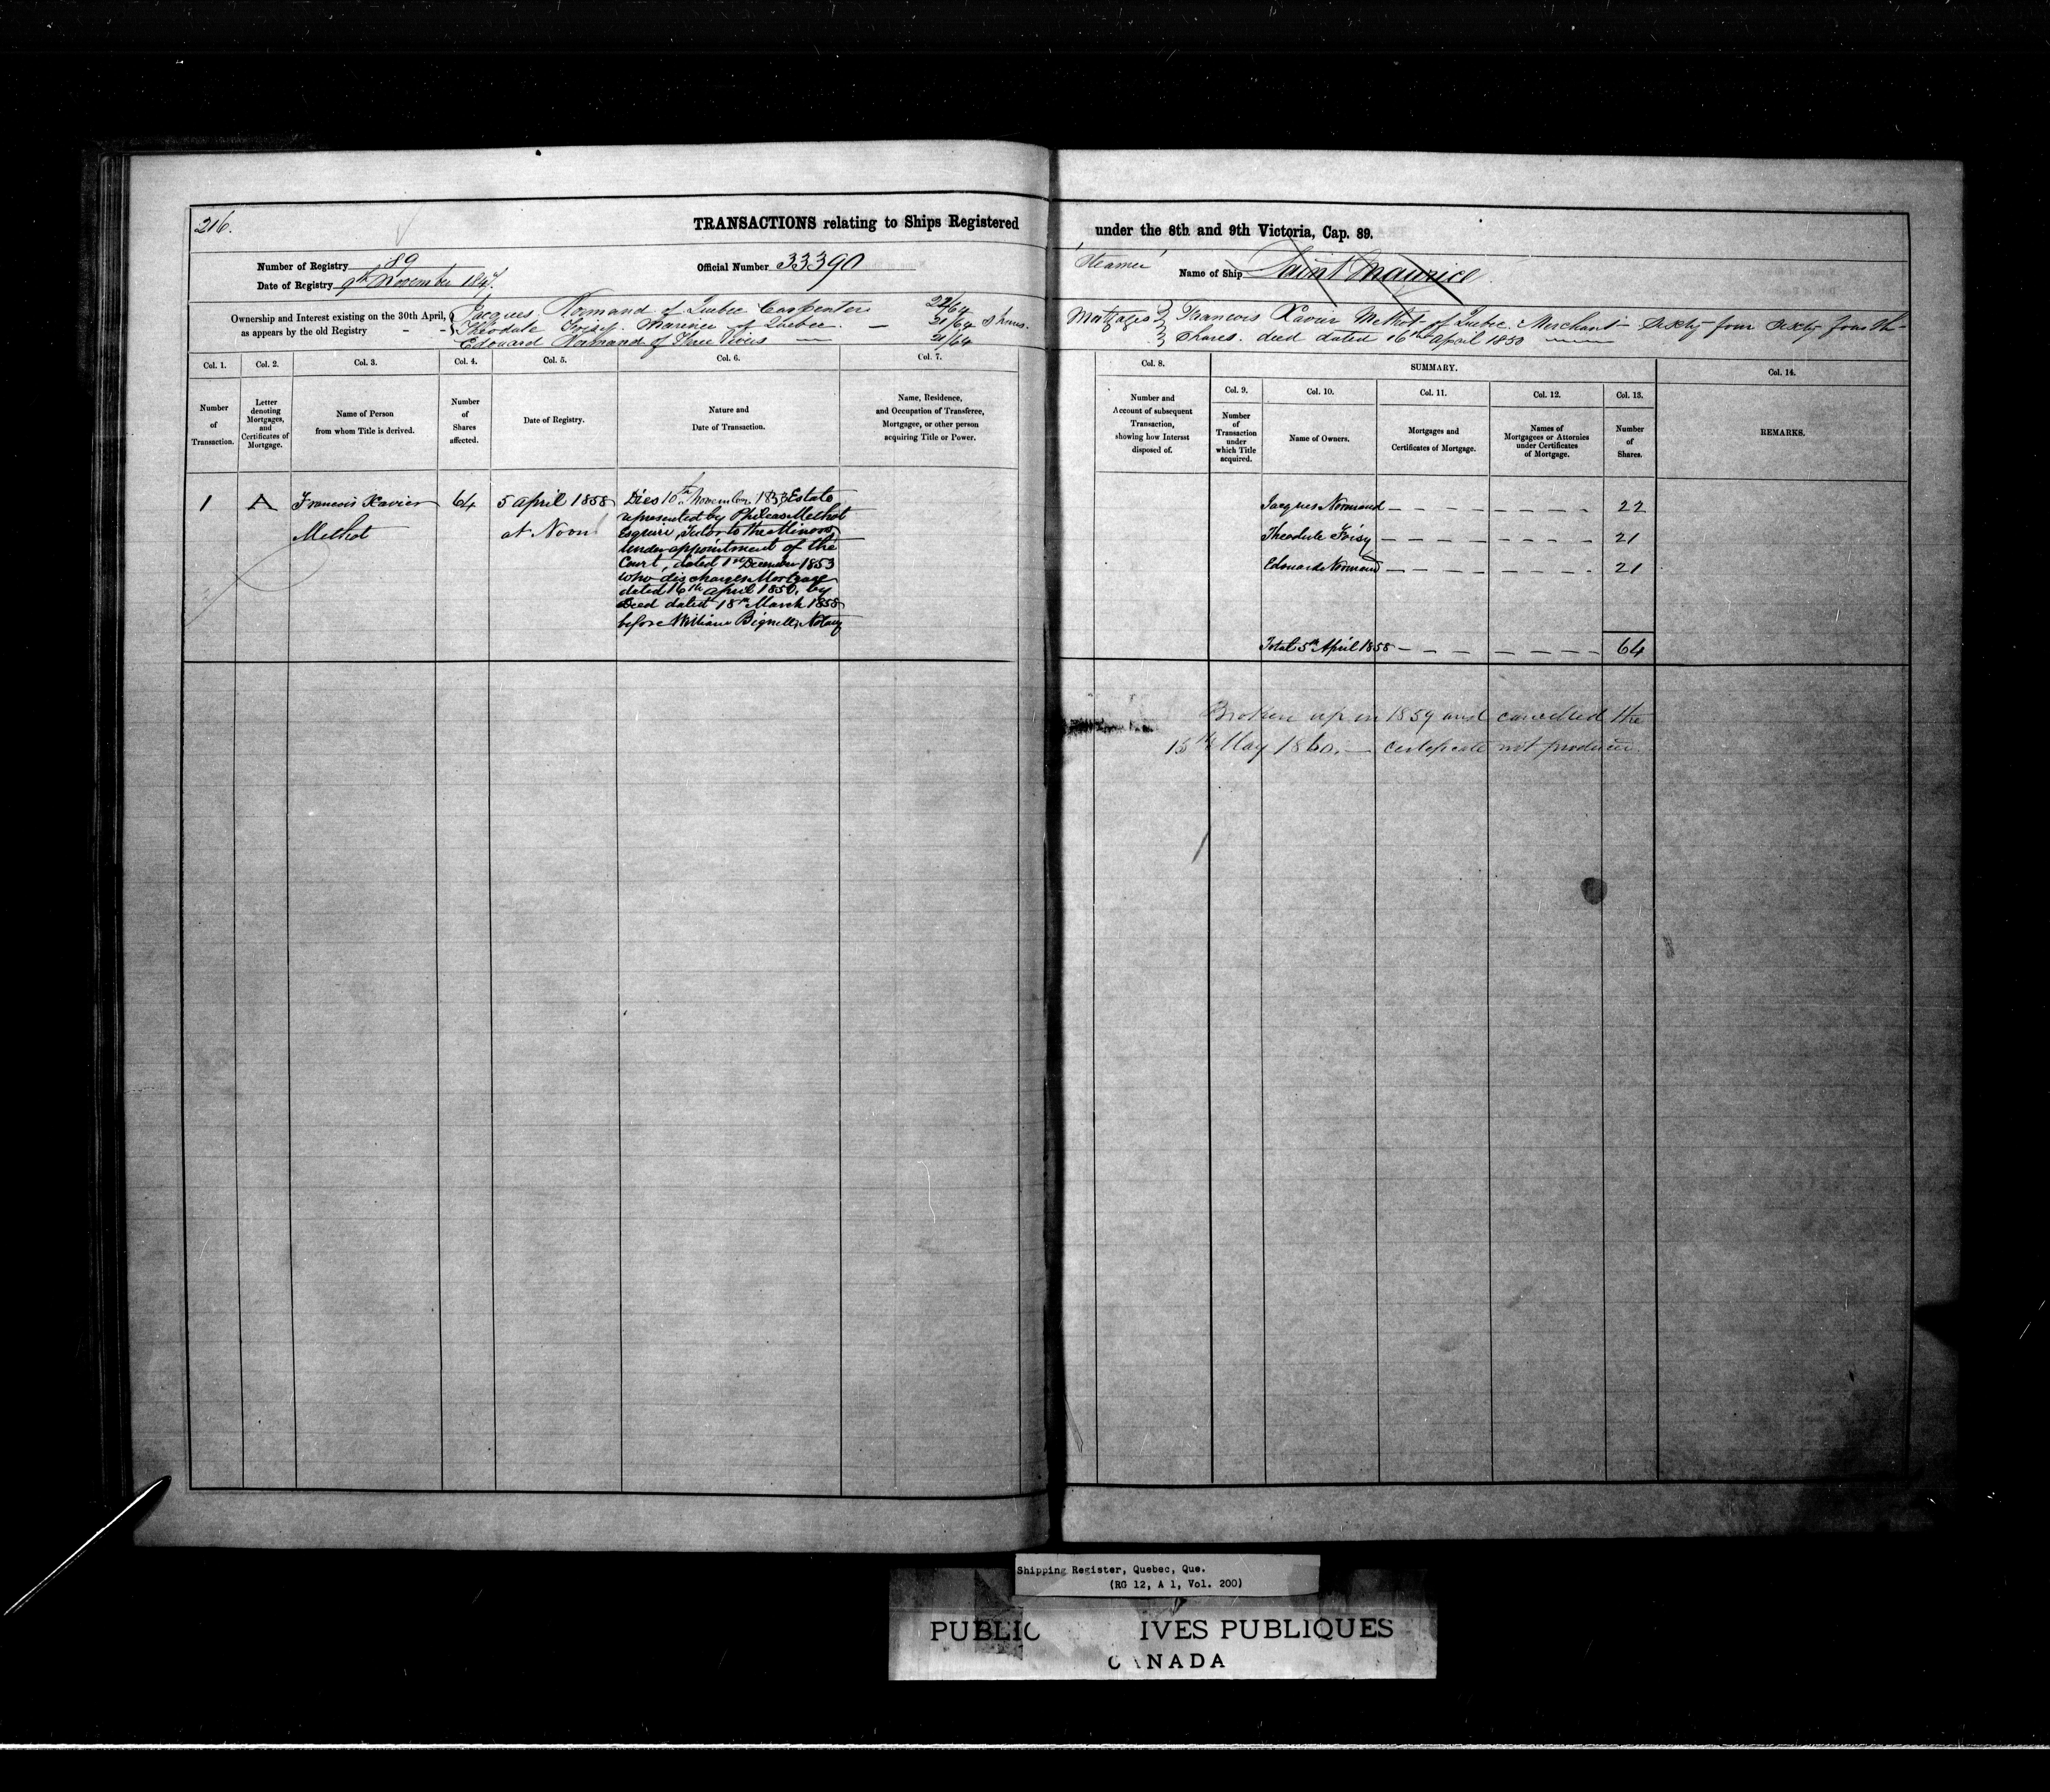 216.
TRANSACTIONS relating to Ships Registered
under the 8th and 9th Victoria, Cap. 89.
Number of Registry 89
Official Number 33390
Steamer
Name of Ship Saint Maurice
Date of Registry 9th November 1847.
Ownership and Interest existing on the 30th April,
as appears by the old Registry - -
Jacques Normand of Quebec Carpenter 22/64
Theodule Foisy. Mariner of Quebec. — 21/64 Shares.
Edouard Normand of Three Rivers — 21/64
Mortgages Francois Xavier Methot of Quebec. Merchant - Sixty-four Sixty fourth-
Shares. deed dated 16th April 1850
Col. 1.
Col. 2.
Col. 3.
Col. 4.
Col. 5.
Col. 6.
Col. 7.
Col. 8.
SUMMARY.
Col. 14.
Col. 9.
Col. 10.
Col. 11.
Col. 12.
Col. 13.
Number
of
Transaction.
Letter
denoting
Mortgages,
and
Certificates of
Mortgage.
Name of Person
from whom Title is derived.
Number
of
Shares
affected.
Date of Registry.
Nature and
Date of Transaction.
Name, Residence,
and Occupation of Transferee,
Mortgagee, or other person
acquiring Title or Power.
Number and
Account of subsequent
Transaction,
showing how Interest
disposed of.
Number
of
Transaction
under
which Title
acquired.
Name of Owners.
Mortgages and
Certificates of Mortgage.
Names of
Mortgagees or Attornies
under Certificates
of Mortgage.
Number
of
Shares.
REMARKS.
1
A
Francois Xavier
Methot
64
5 April 1858
at Noon
Dies 10th November 1853 Estate
represented by Phileas Methot
Esquire, Tutor to the Minors
under appointment of the
Court, dated 1st December 1853
who discharges Mortgage
dated 16th April 1850, by
Deed dated 18th March 1858
before William Bignell, Notary
Jacques Normand — 22
Theodule Foisy — 21
Edouard Normand — 21
Total 5th April 1858 — 64
Broken up in 1859 and cancelled the
15th May 1860. — certificate not produced.
Shipping Register, Quebec, Que.
(RG 12, A 1, Vol. 200)
PUBLIC IVES PUBLIQUES
CANADA